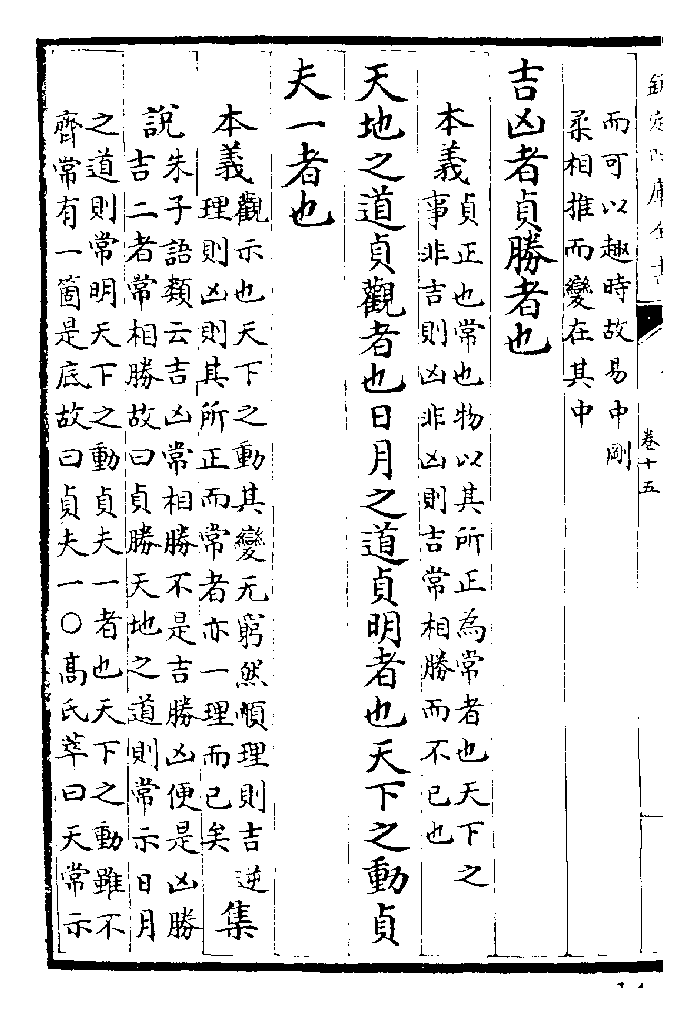 欽定四庫全書
卷十五
而可以趣時故易中剛
柔相推而變在其中
吉凶者貞勝者也
本義貞正也常也物以其所正為常者也天下之
事非吉則凶非凶則吉常相勝而不已也
天地之道貞觀者也日月之道貞明者也天下之動貞
夫一者也
本義觀示也天下之動其變无窮然順理則吉逆
理則凶則其所正而常者亦一理而已矣集
說朱子語類云吉凶常相勝不是吉勝凶便是凶勝
吉二者常相勝故曰貞勝天地之道則常示日月
之道則常明天下之動貞夫一者也天下之動雖不
齊常有一箇是底故曰貞夫一○高氏萃曰天常示